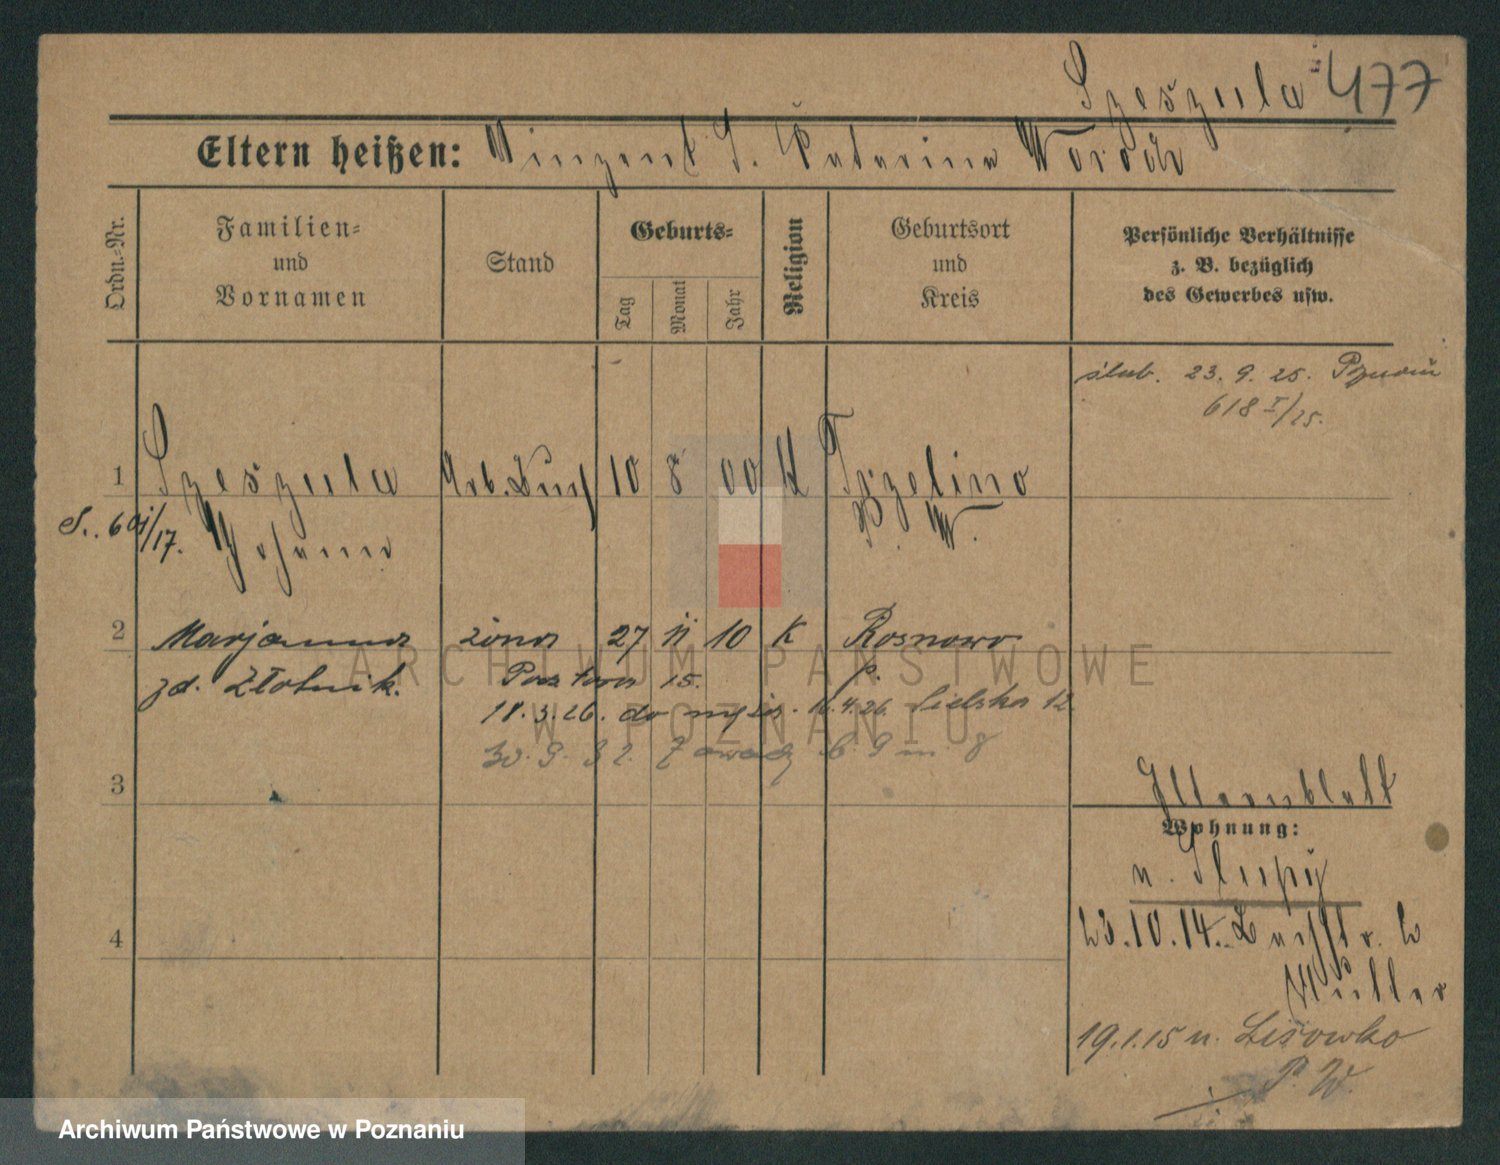 Szeszula 477
Eltern heißen: Vinzent S. Katarina
Ordn.-Nr.
Familien-
und
Vornamen
Stand
Geburts-
Tag
Monat
Jahr
Religion
Geburtsort
und
Kreis
Persönliche Verhältnisse
z. B. bezüglich
des Gewerbes usw.
ślub. 23. 9. 25. Poznań
618 I/25.
1 Szeszula Arb. 10 8 00 K
Johann P. W.
2 Marjanna żona 27 11 10 K Rosnowo
zd. Złotnik. 15. p.
18. 3. 26. do 4. 26. 12
30. 9. 32. 6. 9 m. 8
3
Elternblatt
Wohnung:
n.
4
23. 10. 14. 2
Müller
19. 1. 15 n.
P. W.
ARCHIWUM PAŃSTWOWE
W POZNANIU
Archiwum Państwowe w Poznaniu